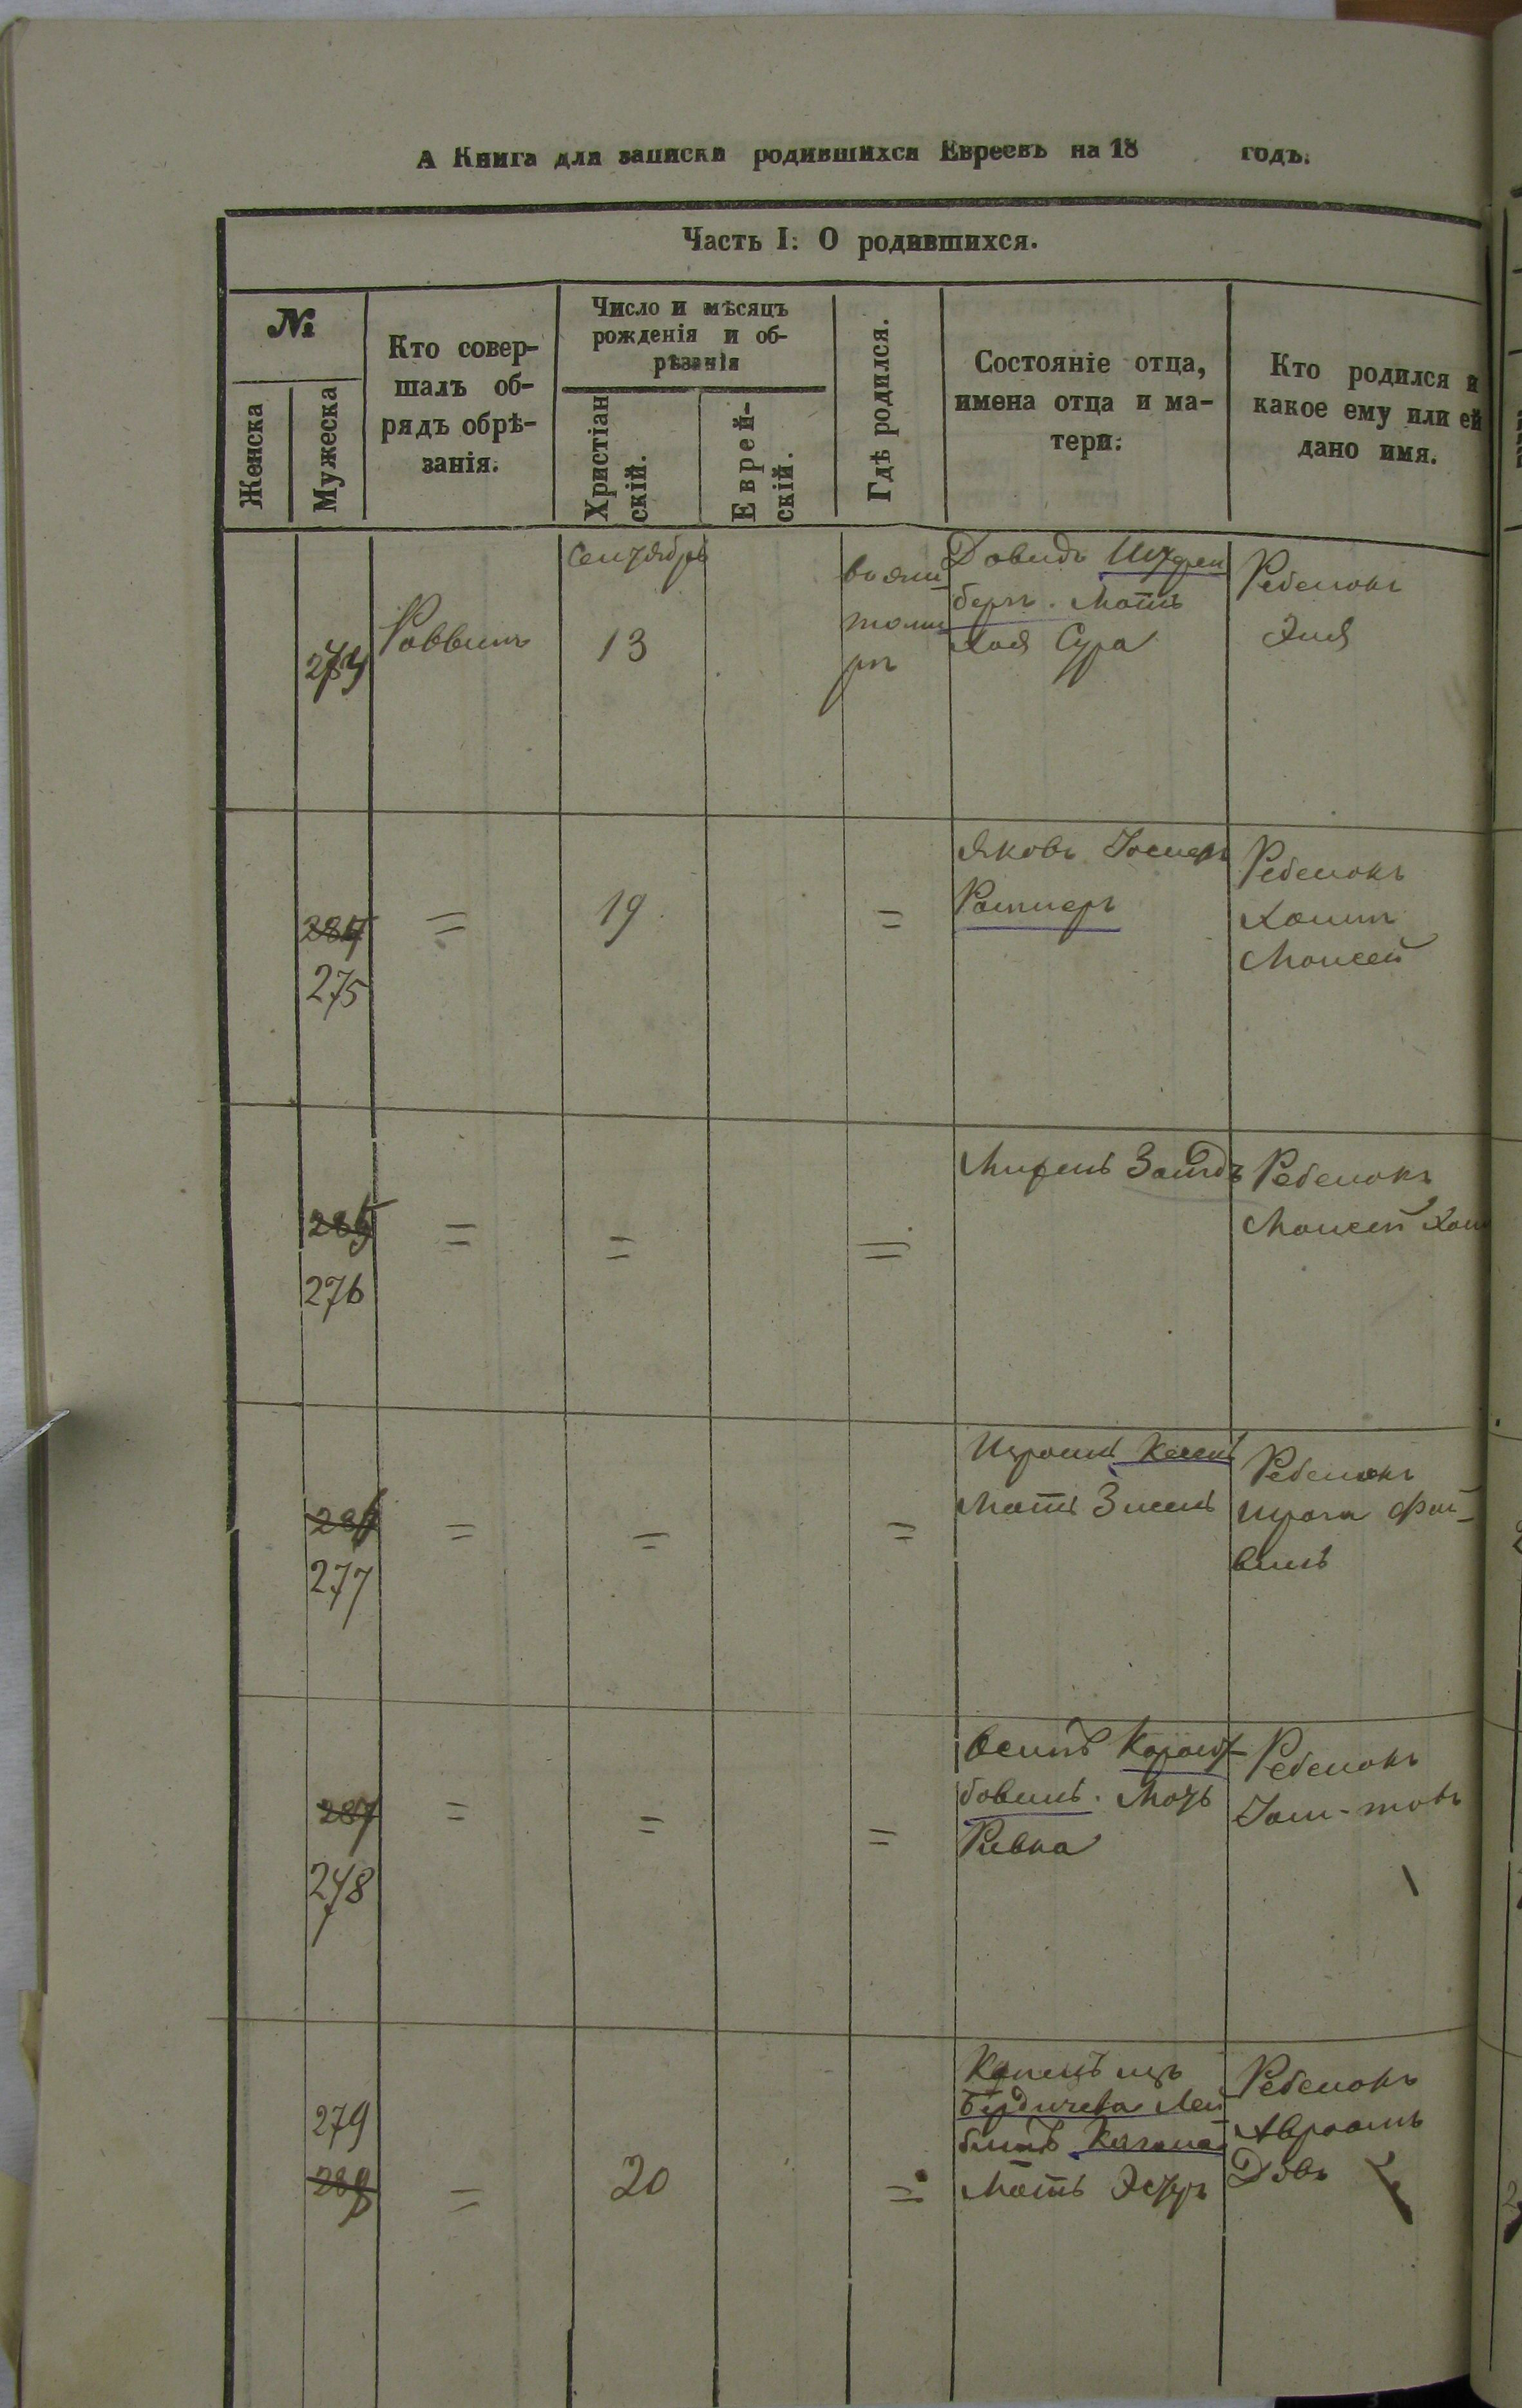 А Книга для записки родившихся Евреевъ на 18 годъ.
Часть I. О родившихся.
№
Женска
Мужеска
Кто совер-
шалъ об-
рядъ обрѣ-
занія.
Число и мѣсяцъ
рожденія и об-
рѣзанія
Христіан
скій.
Еврей-
скій.
Гдѣ родился.
Состояніе отца,
имена отца и ма-
тери.
Кто родился и
какое ему или ей
дано имя.
274
Раввинъ
Сентябрь
13
Давидъ
бергъ. Мать
Хая Сура
Ребенокъ
Эля
284
275
=
19
=
Яковъ
Ратнеръ
Ребенокъ
Хаимъ
Моисей
285
276
=
=
=
Ребенокъ
Моисей Хаи
286
277
=
=
=
Израиль
Мать Зисель
Ребенокъ
Шрага Фай-
вишь
287
278
=
=
=
Мать
Ривка
Ребенокъ
Іом-товъ
279
288
=
20
=
Купецъ изъ
Бердичева Лей
бишъ Кагана
Мать Эстеръ
Ребенокъ
Авраамъ
Довъ